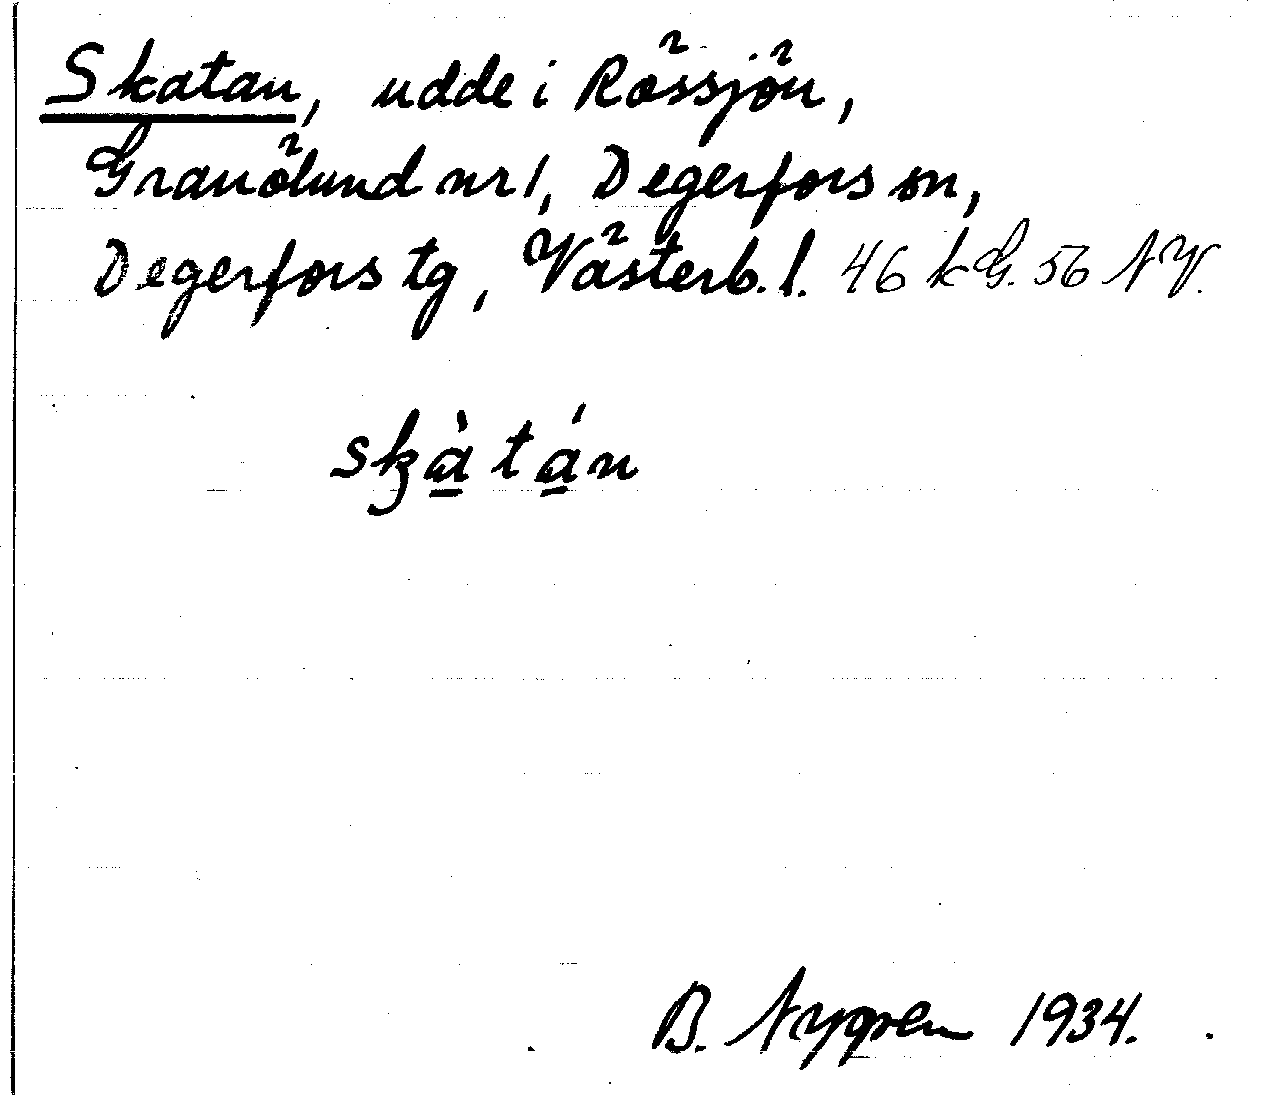 Skatan, udde i Rössjön,
Granölund nr 1, Degerfors sn,
Degerfors tg, Västerb. l. 46 k G. 56 NV.
skàtán
B. Nygren 1934.